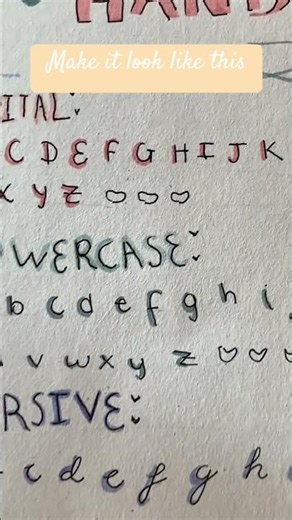 HAND
Make it look like this
ITAL:
C D E F G H I J K
X Y Z
WERCASE:
b c d e f g h i
v w x y z
RSIVE:
c d e f g h